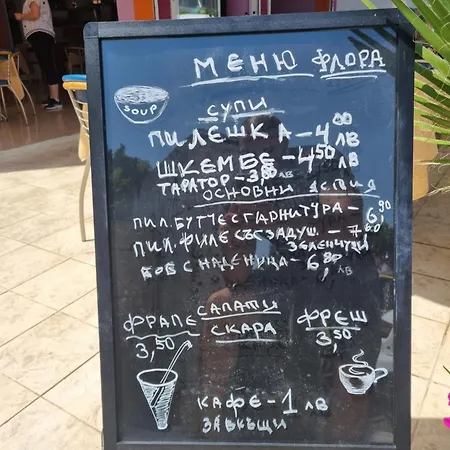 МЕНЮ ФЛОРА
SOUP
СУПИ
ПИЛЕШКА - 4 00 ЛВ
ШКЕМБЕ - 4 50 ЛВ
ТАРАТОР - 3 80 ЛВ
ОСНОВНИ ЯСТИЯ
ПИЛ. БУТЧЕ С ГАРНИТУРА - 6,90
ПИЛ. ФИЛЕ СЪС ЗАДУШ. - 7 60
ЗЕЛЕНЧУЦИ
БОБ С НАДЕНИЦА - 6,80 ЛВ
САЛАТИ
ФРАПЕ СКАРА ФРЕШ
3,50 3,50
КАФЕ - 1 ЛВ
ЗА ВКЪЩИ